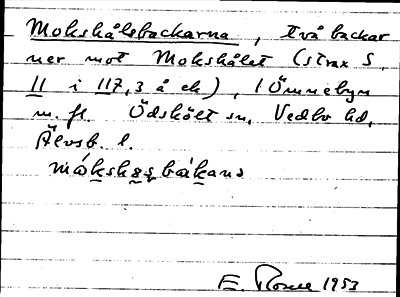 Mokshålsbackarna, två backar
ner mot Mokshålet (strax S.
11 i 117,3 å ek), i Ömmebyn
m. fl. Ödskölt sn, Vedbo hd,
Älvsb. l.
E. Rosell 1953